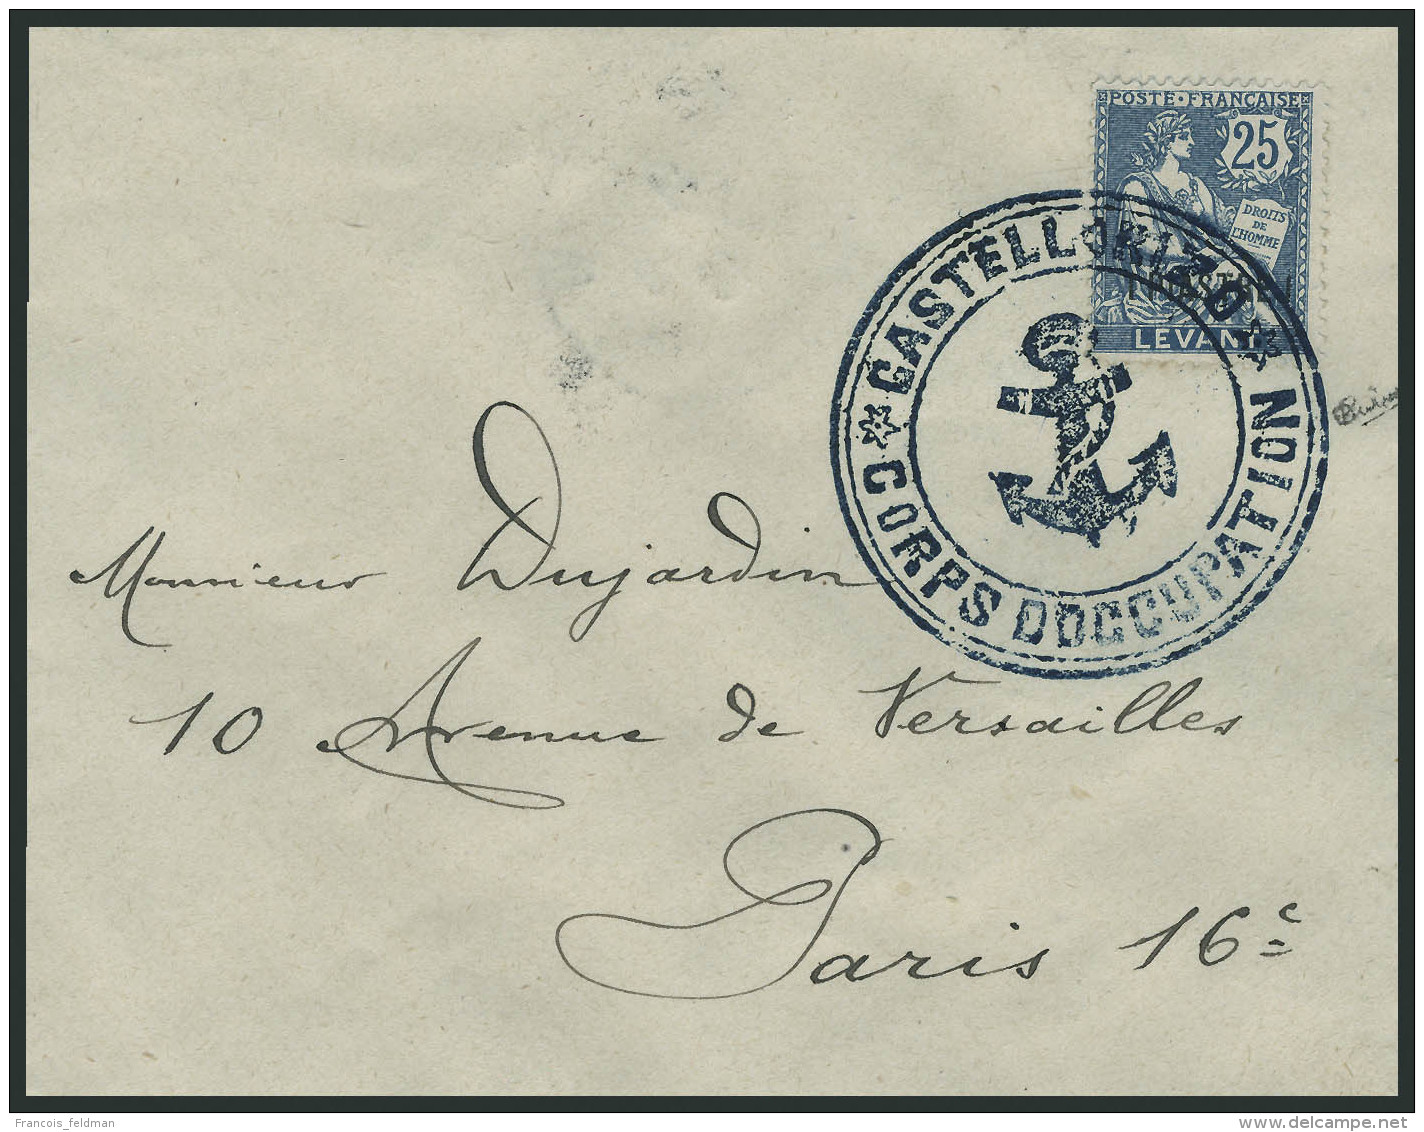 POSTE · FRANÇAISE
25
DROITS
DE
L'HOMME
LEVANT
CASTELLORIZO
CORPS DOCCUPATION
Monsieur Dujardin
10 Avenue de Versailles
Paris 16e
Francois_feldman
www.delcampe.net